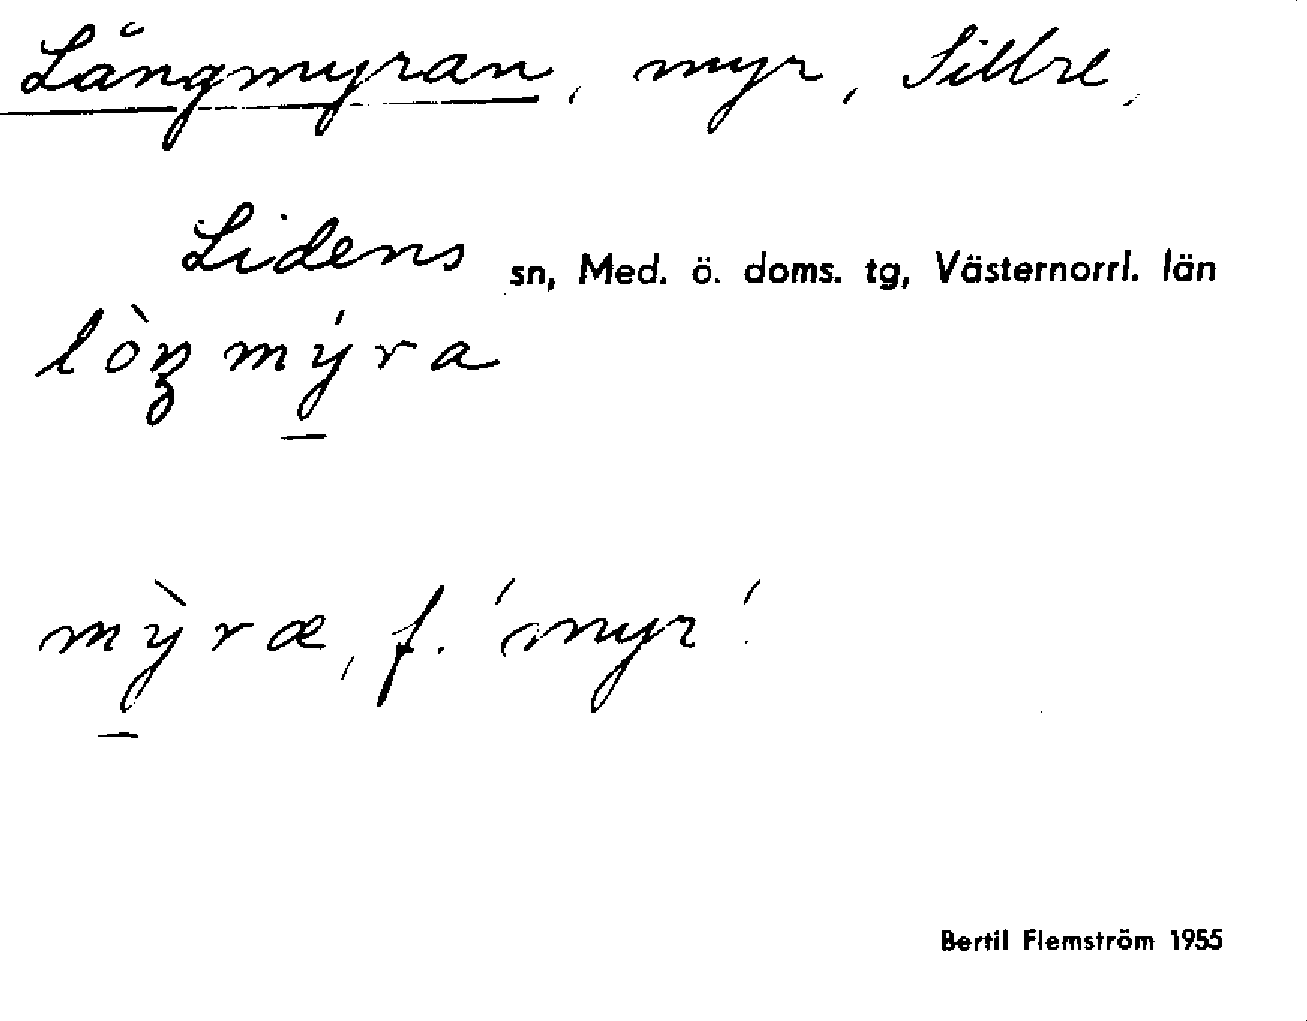 Långmyran, myr, Sillre,
Lidens sn, Med. ö. doms. tg, Västernorrl. län
lòŋmýra
mỳræ, f. 'myr'.
Bertil Flemström 1955